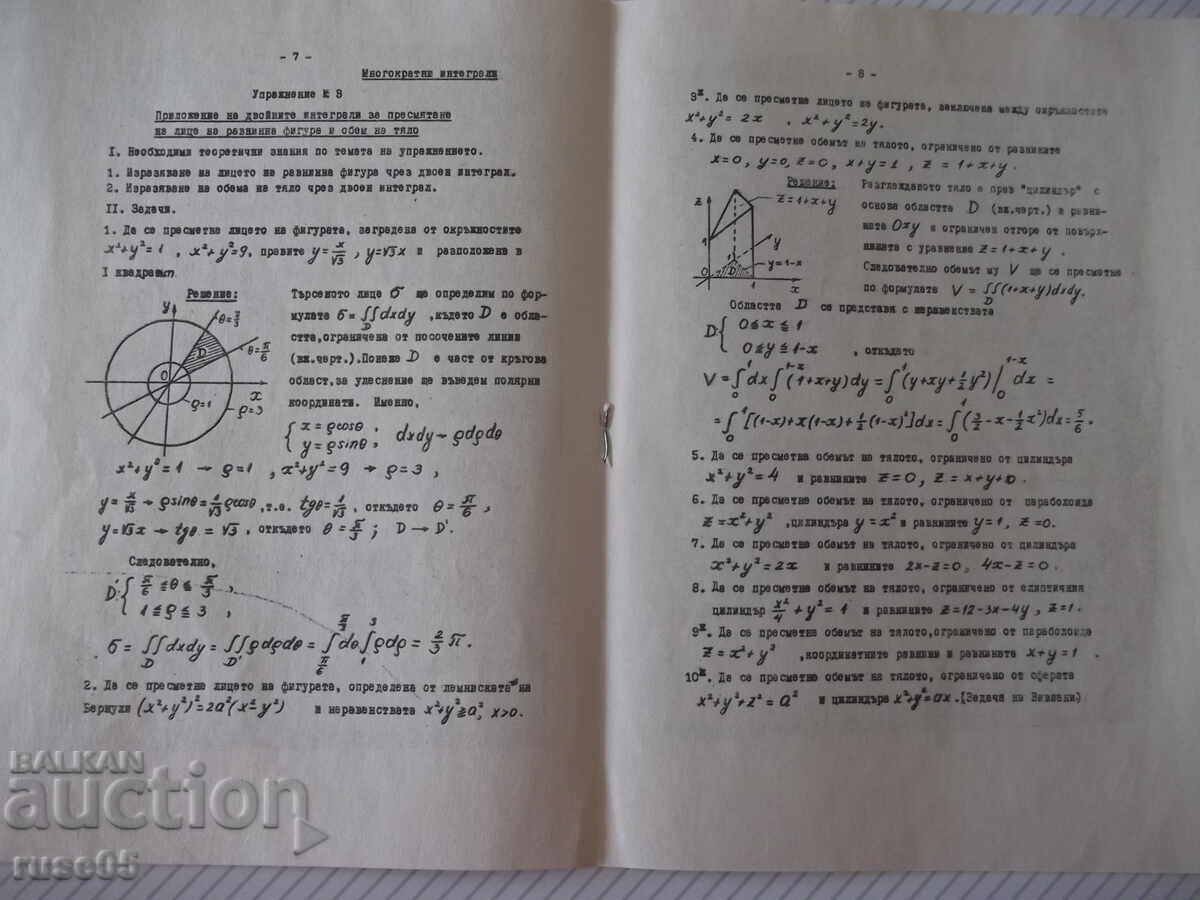 - 7 -
Многократни интеграли
Упражнение № 3
Приложение на двойните интеграли за пресмятане
на лице на равнинна фигура и обем на тяло
I. Необходими теоретични знания по темата на упражнението.
1. Изразяване на лицето на равнинна фигура чрез двоен интеграл.
2. Изразяване на обема на тяло чрез двоен интеграл.
II. Задачи.
1. Да се пресметне лицето на фигурата, заградена от окръжностите
x²+y²=1 , x²+y²=9, правите y=x/√3 , y=√3x и разположена в
I квадрант.
Решение:
Търсеното лице σ ще определим по фор-
мулата σ=∬dxdy , където D е обла-
D
стта, ограничена от посочените линии
(вж.черт.). Понеже D е част от кръгова
област, за улеснение ще въведем полярни
координати. Именно,
y
θ=π/3
D
θ=π/6
0
x
ρ=1
ρ=3
{ x=ρcosθ , y=ρsinθ , dxdy→ρdρdθ
x²+y²=1 → ρ=1 , x²+y²=9 → ρ=3 ,
y=x/√3 → ρsinθ=1/√3 ρcosθ , т.е. tgθ=1/√3 , откъдето θ=π/6 ,
y=√3x → tgθ=√3 , откъдето θ=π/3 ; D → D'.
Следователно,
D' { π/6 ≤ θ ≤ π/3 ,
1 ≤ ρ ≤ 3 ,
σ=∬dxdy=∬ρdρdθ=∫dθ∫ρdρ=2/3 π.
2. Да се пресметне лицето на фигурата, определена от лемниската на
Бернули (x²+y²)²=2a²(x²-y²) и неравенствата x²+y²≥a², x>0.
- 8 -
3ˣ. Да се пресметне лицето на фигурата, заключена между окръжностите
x²+y²=2x , x²+y²=2y.
4. Да се пресметне обемът на тялото, ограничено от равнините
x=0, y=0, z=0, x+y=1 , z=1+x+y.
Решение: Разглежданото тяло е прав "цилиндър" с
основа областта D (вж.черт.) в равни-
ната Oxy и ограничен отгоре от повърх-
нината с уравнение z=1+x+y .
Следователно обемът му V ще се пресметне
по формулата V=∬(1+x+y)dxdy.
D
z
z=1+x+y
y
1
1
y=1-x
0
D
1
x
Областта D се представя с неравенствата
D { 0≤x≤1
0≤y≤1-x , откъдето
V=∫₀¹dx∫₀¹⁻ˣ(1+x+y)dy=∫₀¹(y+xy+½y²)|₀¹⁻ˣ dx=
=∫₀¹[(1-x)+x(1-x)+½(1-x)²]dx=∫₀¹(3/2-x-½x²)dx=5/6.
5. Да се пресметне обемът на тялото, ограничено от цилиндъра
x²+y²=4 и равнините z=0, z=x+y+10.
6. Да се пресметне обемът на тялото, ограничено от параболоида
z=x²+y² , цилиндъра y=x² и равнините y=1, z=0.
7. Да се пресметне обемът на тялото, ограничено от цилиндъра
x²+y²=2x и равнините 2x-z=0, 4x-z=0.
8. Да се пресметне обемът на тялото, ограничено от елиптичния
цилиндър x²/4+y²=1 и равнините z=12-3x-4y , z=1.
9ˣ. Да се пресметне обемът на тялото, ограничено от параболоида
z=x²+y² , координатните равнини и равнината x+y=1 .
10ˣ. Да се пресметне обемът на тялото, ограничено от сферата
x²+y²+z²=a² и цилиндъра x²+y²=ax. (Задача на Вивиани)
BALKAN
auction
ruse05